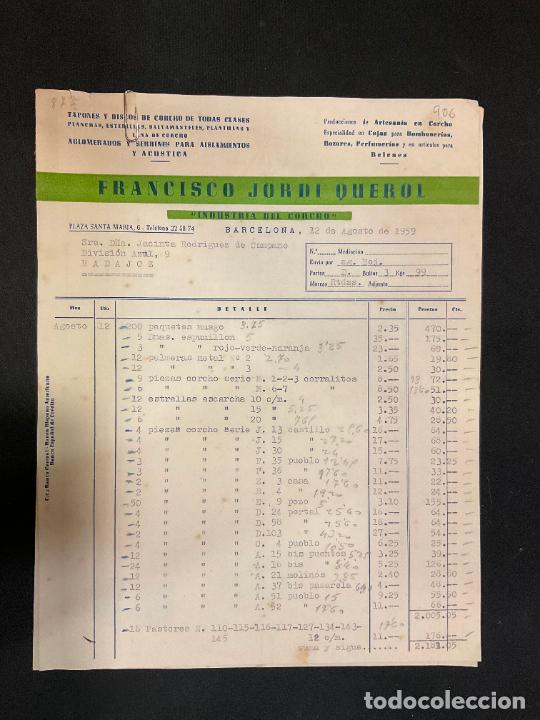 877
906
TAPONES Y DISCOS DE CORCHO DE TODAS CLASES
PLANCHAS, ESTERILLAS, SALVAMANTELES, PLANTILLAS Y
LANA DE CORCHO
AGLOMERADOS Y SERRINES PARA AISLAMIENTOS
Y ACUSTICA
Producciones de Artesanía en Corcho
Especialidad en Cajas para Bombonerías,
Bazares, Perfumerías y en artículos para
Belenes
FRANCISCO JORDI QUEROL
"INDUSTRIA DEL CORCHO"
PLAZA SANTA MARIA, 6 - Teléfono 22 58 74
BARCELONA, 12 de Agosto de 1959
Sra. Dña. Jacinta Rodriguez de Campano
División Azul, 9
BADAJOZ
N.° Mediación
Envio por ag. Boj.
Portes D. Bultos 3 Kgs 99
Marcas Rtdas. Adjunto
Mes Día DETALLE Precio Pesetas Cts.
Agosto 12 200 paquetes musgo 3.75 2.35 470.--
5 Dnas. espumillon 5 35.-- 175.--
3 " " rojo-verde-naranja 3'25 23.-- 69.--
12 palmeras metal nº 2 2,70 1.65 19.80
12 " " " 3 4 2.50 30.--
9 piezas corcho serie M. 1-2-3 corralitos 8.-- 72.--
6 " " " M. 6-7 " 8.50 51.--
12 estrellas escarcha 10 c/m. 4 2.50 30.--
12 " " 15 " 5,25 3.35 40.20
6 " " 20 " 4.75 28.50
4 piezas corcho Serie J. 13 castillo 16.-- 64.--
4 " " " J. 15 " 17.-- 68.--
4 " " " J. 30 " 15.-- 60.--
3 " " " F. 35 pueblo 7.75 23.25
3 " " " F. 36 " 11.-- 33.--
2 " " " E. 3 casa 11.-- 22.--
2 " " " E. 4 " 12.-- 24.--
50 " " " E. 9 pozo 5 3.10 155.--
4 " " " D. 24 portal 16.-- 64.--
4 " " " D. 58 " 16.-- 64.--
2 " " " D.103 " 27.-- 54.--
4 " " " C. 4 pueblo 6.25 25.--
12 " " " A. 15 bis puentes 3.25 39.--
24 " " " A. 16 bis " 5.25 126.--
12 " " " A. 21 molinos 2.40 28.80
12 " " " A. 37 bis pasarela 4.-- 48.--
6 " " " A. 51 pueblo 15 9.25 55.50
6 " " " A. 52 " 11.-- 66.--
2.005.05
16 Pastores N. 110-115-116-117-127-134-143-
145 12 c/m. 11.-- 176.--
suma y sigue.
todocoleccion
todocoleccion.net